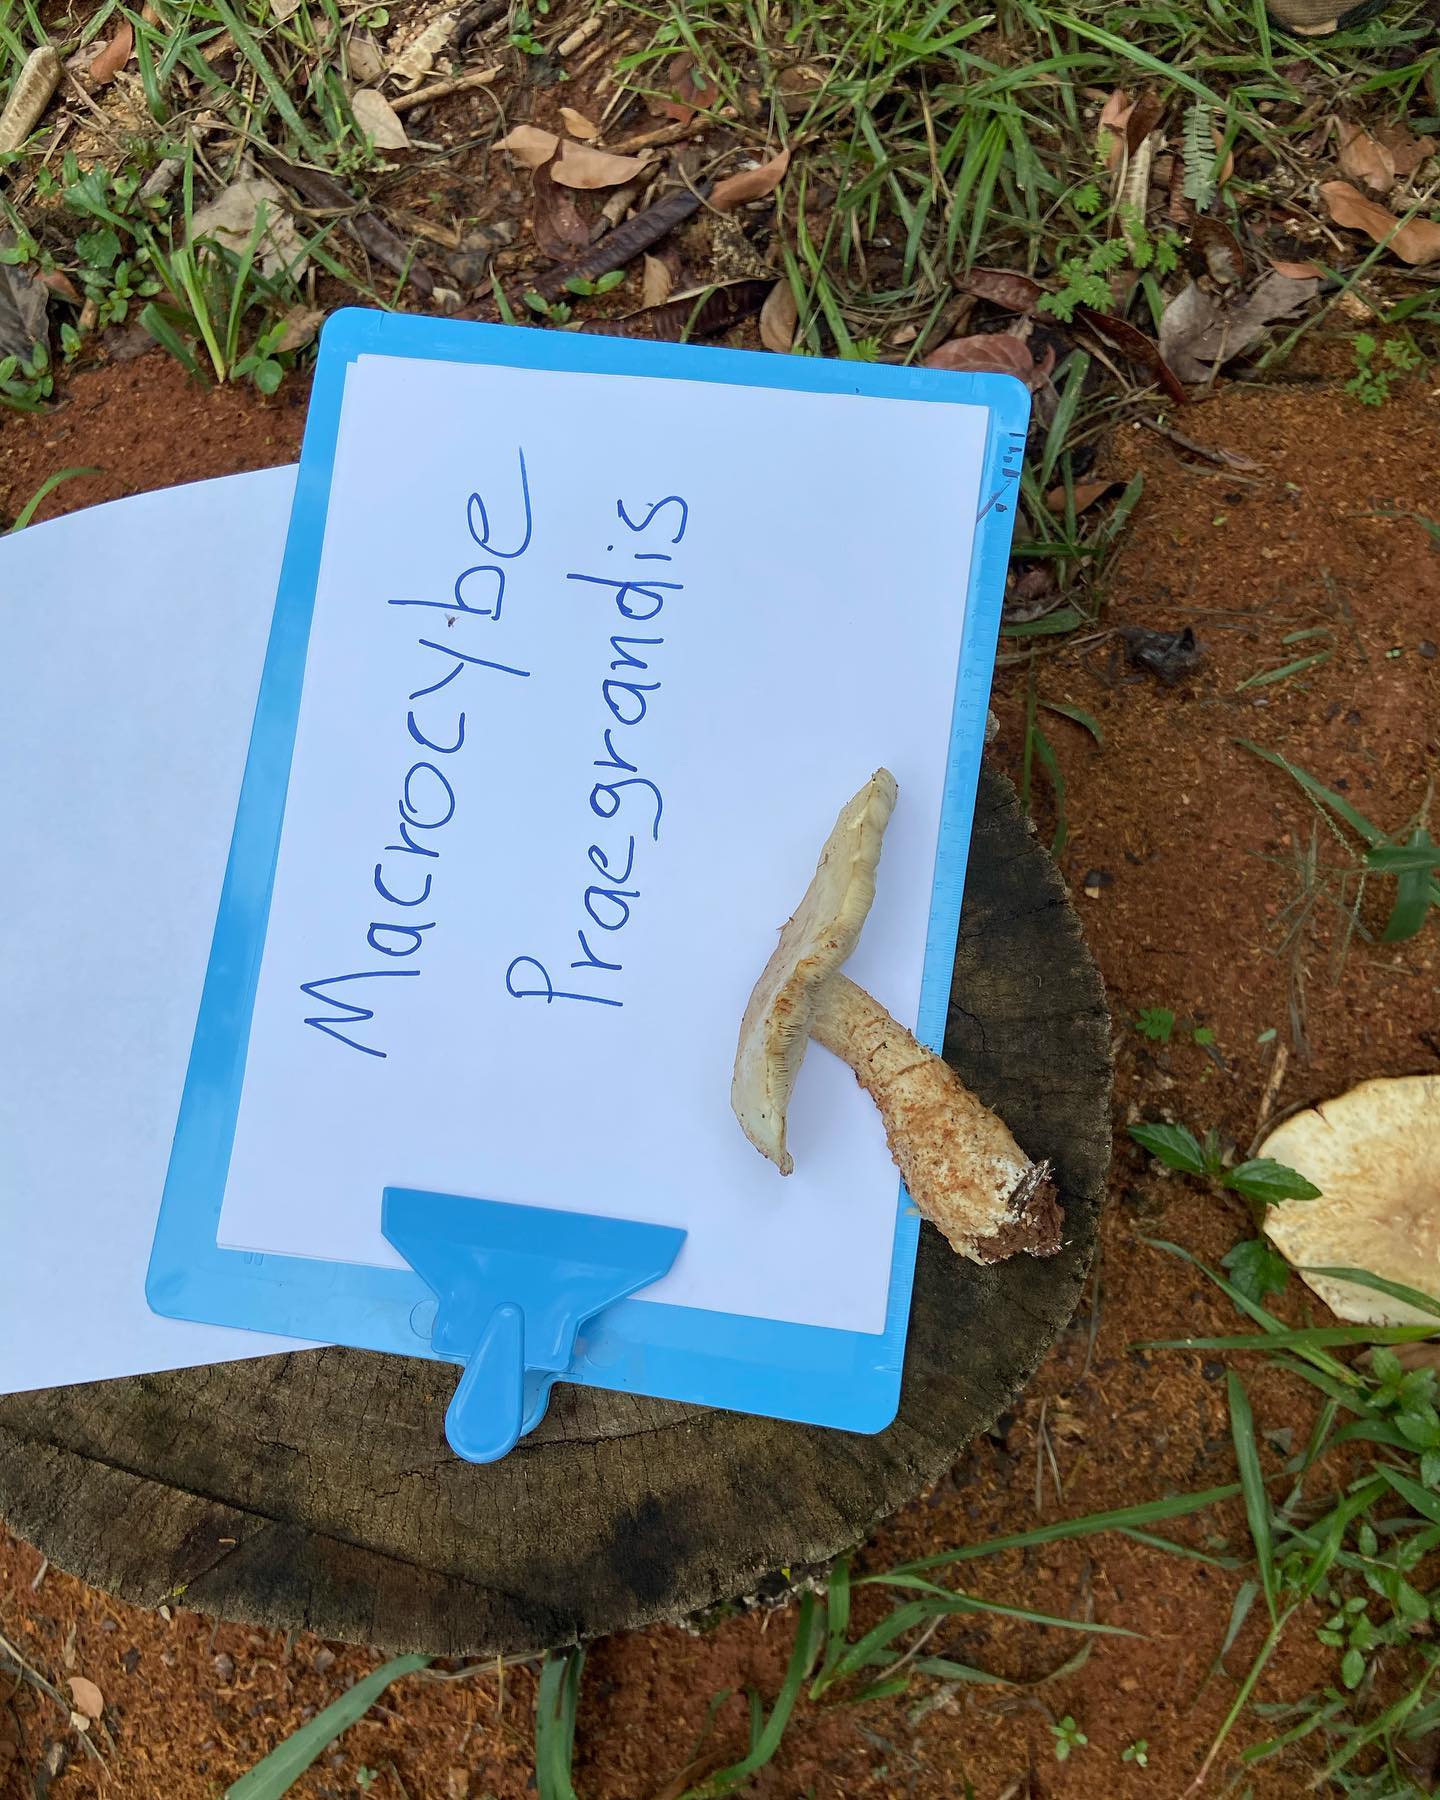 Macrocybe
Praegrandis